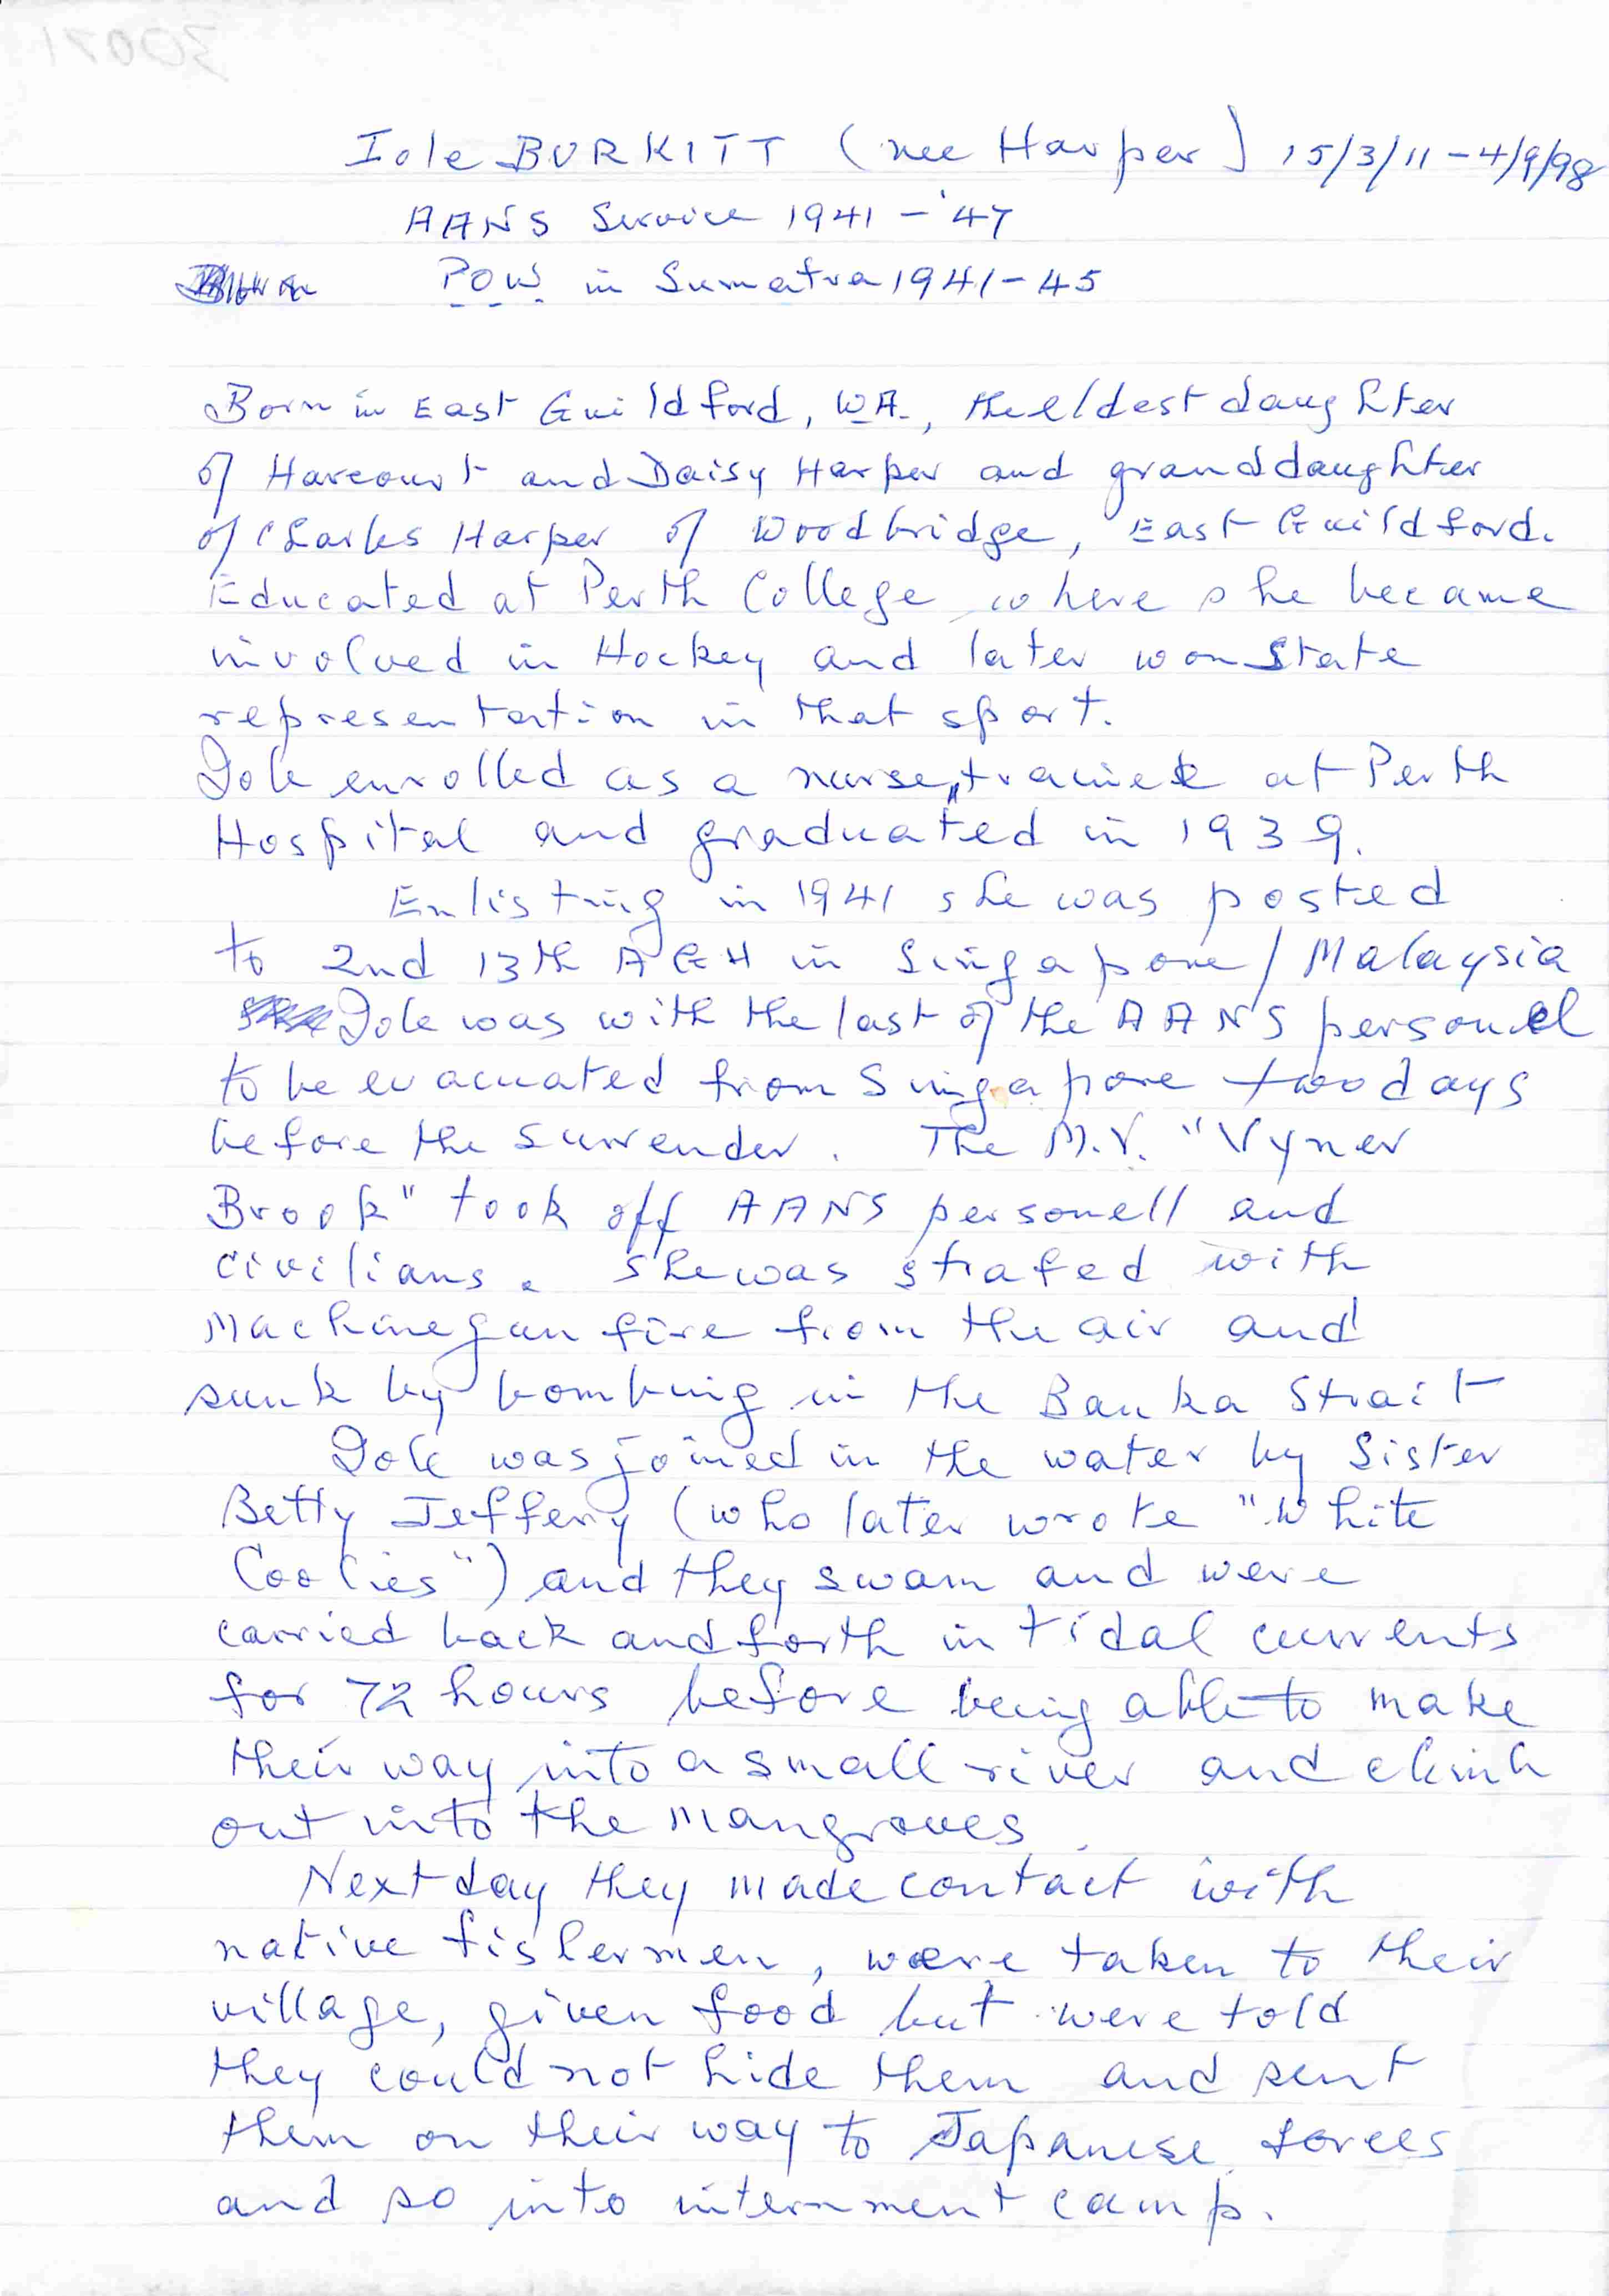 Iole BURKITT (nee Harper) 15/3/11 - 4/9/98
AANS Service 1941 - '47
POW in Sumatra 1941 - 45
Born in East Guildford, WA., the eldest daughter
of Harcourt and Daisy Harper and granddaughter
of Charles Harper of Woodbridge, East Guildford.
Educated at Perth College where she became
involved in Hockey and later won State
representation in that sport.
Iole enrolled as a nurse, trainee at Perth
Hospital and graduated in 1939.
Enlisting in 1941 she was posted
to 2nd 13th AGH in Singapore / Malaysia
Iole was with the last of the AANS personel
to be evacuated from Singapore two days
before the surrender. The M.V. "Vyner
Brook" took off AANS personell and
civilians. She was strafed with
Machinegun fire from the air and
sunk by bombing in the Banka Strait
Iole was joined in the water by Sister
Betty Jeffery (who later wrote "White
Coolies") and they swam and were
carried back and forth in tidal currents
for 72 hours before being able to make
their way into a small river and climb
out into the Mangroves
Next day they made contact with
native fishermen, were taken to their
village, given food but were told
they could not hide them and sent
them on their way to Japanese forces
and so into internment camp.